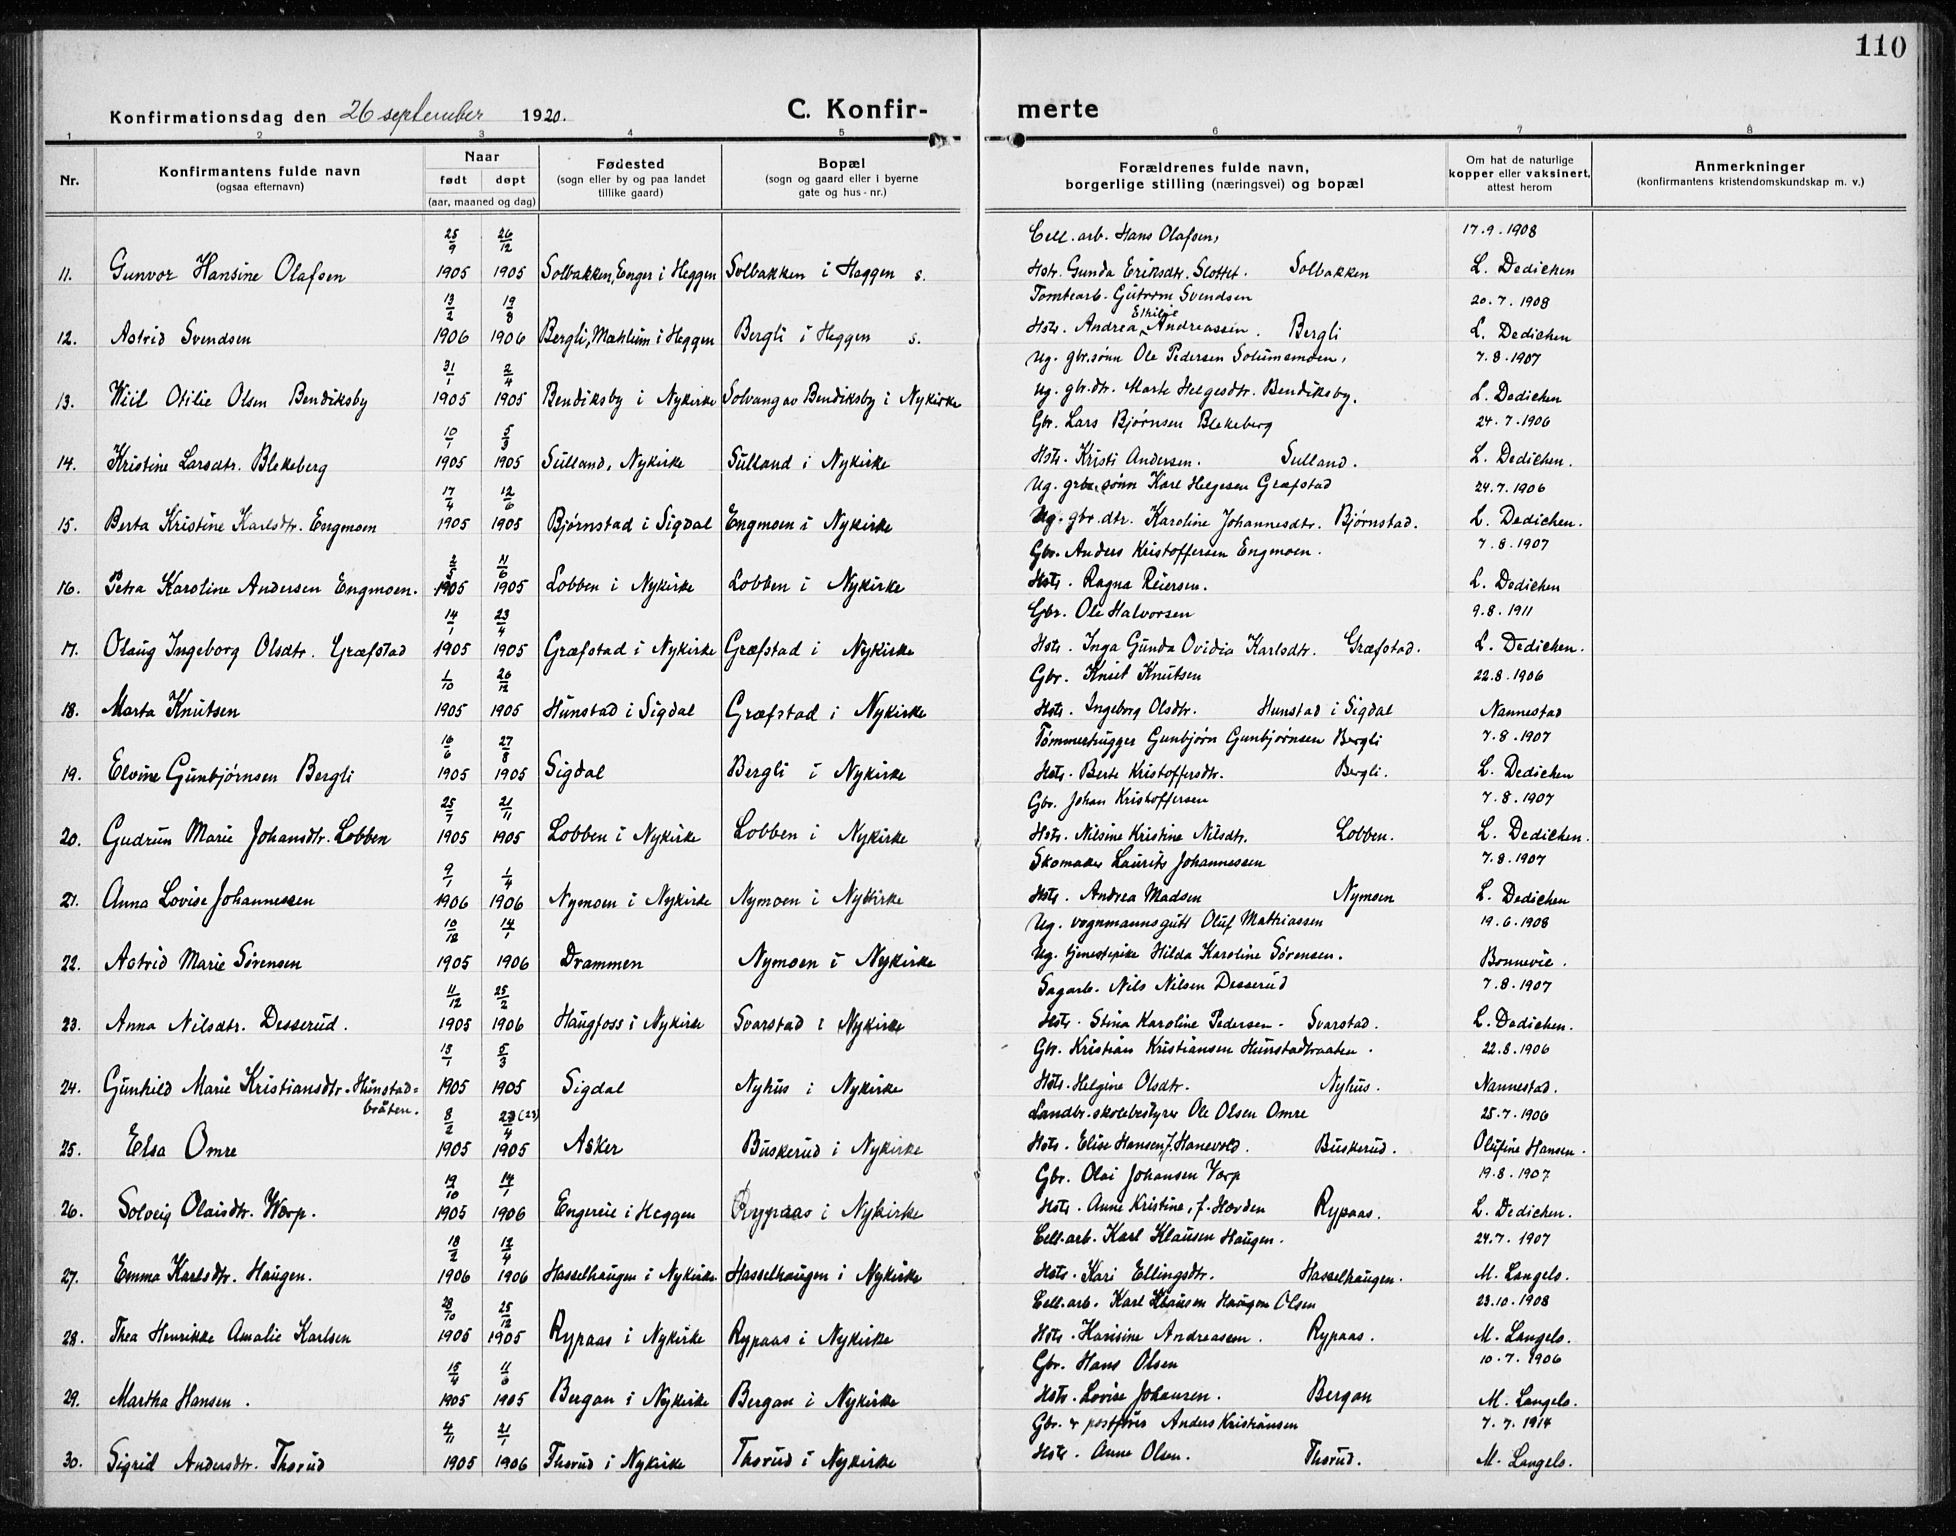 110
Konfirmationsdag den 26 september 1920. C. Konfir- merte
1 2 3 4 5 6 7 8
Nr. Konfirmantens fulde navn (ogsaa efternavn) Naar født døpt (aar, maaned og dag) Fødested (sogn eller by og paa landet tillike gaard) Bopæl (sogn og gaard eller i byerne gate og hus-nr.) Forældrenes fulde navn, borgerlige stilling (næringsvei) og bopæl Om hat de naturlige kopper eller vaksinert, attest herom Anmerkninger (konfirmantens kristendomskundskap m. v.)
25/9 26/12 Cell. arb. Hans Olafsen, 17.9.1908
11. Gunvor Hansine Olafsen 1905 1905 Solbakken, Enger i Heggen Solbakken i Heggen s. Hstr. Gunda Eriksdtr. Slottet. Solbakken L. Dedichen
13/2 19/8 Tomtearb. Guttorm Svendsen 20.7.1908
12. Astrid Svendsen 1906 1906 Bergli, Mæhlum i Heggen Bergli i Heggen s. Hstr. Andrea Ethilie Andreassen. Bergli L. Dedichen
31/1 2/4 Ug. gbr.sønn Ole Pedersen Solumsmoen, 7.8.1907
13. Wiil Otilie Olsen Bendiksby 1905 1905 Bendiksby i Nykirke Solvang av Bendiksby i Nykirke Ug. gbr.dtr. Marte Helgesdtr. Bendiksby. L. Dedichen
10/1 5/3 Gbr. Lars Bjørnsen Blekeberg 24.7.1906
14. Kristine Larsdtr. Blekeberg 1905 1905 Sulland, Nykirke Sulland i Nykirke Hstr. Kristi Andersen. Sulland. L. Dedichen.
17/4 12/6 Ug. grbr. sønn Karl Helgesen Græfstad 24.7.1906
15. Berta Kristine Karlsdtr. Engmoen 1905 1905 Bjørnstad i Sigdal Engmoen i Nykirke Ug. gbr.dtr. Karoline Johannesdtr. Bjørnstad. L. Dedichen.
2/5 11/6 Gbr. Anders Kristoffersen Engmoen. 7.8.1907
16. Petra Karoline Andersen Engmoen. 1905 1905 Lobben i Nykirke Lobben i Nykirke Hstr. Ragna Reiersen. L. Dedichen
14/1 23/4 Gbr. Ole Halvorsen 9.8.1911
17. Olaug Ingeborg Olsdtr. Græfstad 1905 1905 Græfstad i Nykirke Græfstad i Nykirke Hstr. Inga Gunda Ovidia Karlsdtr. Græfstad. L. Dedichen.
1/10 26/12 Gbr. Knut Knutsen 22.8.1906
18. Marta Knutsen 1905 1905 Hunstad i Sigdal Græfstad i Nykirke Hstr. Ingeborg Olsdtr. Hunstad i Sigdal Nannestad
16/6 27/8 Tømmerhugger Gunbjørn Gunbjørnsen Bergli 7.8.1907
19. Elvine Gunbjørnsen Bergli 1905 1905 Sigdal Bergli i Nykirke Hstr. Berte Kristoffersdtr. Bergli. L. Dedichen
25/7 21/11 Gbr. Johan Kristoffersen 7.8.1907
20. Gudrun Marie Johansdtr. Lobben 1905 1905 Lobben i Nykirke Lobben i Nykirke Hstr. Nilsine Kristine Nilsdtr. Lobben. L. Dedichen.
9/1 1/4 Skomaker Laurits Johannessen 7.8.1907
21. Anna Lovise Johannessen 1906 1906 Nymoen i Nykirke Nymoen i Nykirke Hstr. Andrea Madsen Nymoen L. Dedichen
10/12 14/1 Ug. vognmannsgutt Oluf Mathiassen 19.6.1908
22. Astrid Marie Sørensen 1905 1906 Drammen Nymoen i Nykirke Ug. tjenestepike Hilda Karoline Sørensen. Bonnevie.
11/12 25/2 Sagarb. Nils Nilsen Desserud 7.8.1907
23. Anna Nilsdtr. Desserud. 1905 1906 Haugfoss i Nykirke Svarstad i Nykirke Hstr. Stina Karoline Pedersen. Svarstad. L. Dedichen.
13/1 5/3 Gbr. Kristian Kristiansen Hunstadbraaten. 22.8.1906
24. Gunhild Marie Kristiansdtr. Hunstad= 1905 1905 Sigdal Nyhus i Nykirke Hstr. Helgine Olsdtr. Nyhus. Nannestad.
bråten. 8/2 23 (23)/4 Landbr.skolebestyrer Ole Olsen Omre 25.7.1906
25. Elsa Omre 1905 1905 Asker Buskerud i Nykirke Hstr. Elise Hansen f. Hanevold. Buskerud. Olufine Hansen.
19/10 14/1 Gbr. Olai Johansen Vorp 19.8.1907
26. Solveig Olaisdtr. Worp. 1905 1906 Engereie i Heggen Rypaas i Nykirke Hstr. Anne Kristine, f. Hovden Rypaas. L. Dedichen.
18/2 12/4 Cell.arb. Karl Klausen Haugen. 24.7.1907
27. Emma Karlsdtr. Haugen. 1906 1906 Hasselhaugen i Nykirke Hasselhaugen i Nykirke Hstr. Kari Ellingsdtr. Hasselhaugen. M. Langels.
28/10 25/12 Cell.arb. Karl Klausen Haugen Olsen 23.10.1908
28. Thea Henrikke Amalie Karlsen 1905 1905 Rypaas i Nykirke Rypaas i Nykirke Hstr. Hansine Andreasen. Rypaas. M. Langels.
15/4 11/6 Gbr. Hans Olsen 10.7.1906
29. Martha Hansen. 1905 1905 Bergan i Nykirke Bergan i Nykirke Hstr. Lovise Johansen. Bergan M. Langels.
4/11 21/1 Gbr. & postfører Anders Kristiansen 7.7.1914
30. Sigrid Andersdtr. Thorud 1905 1906 Thorud i Nykirke Thorud i Nykirke Hstr. Anne Olsen. Thorud. M. Langels.